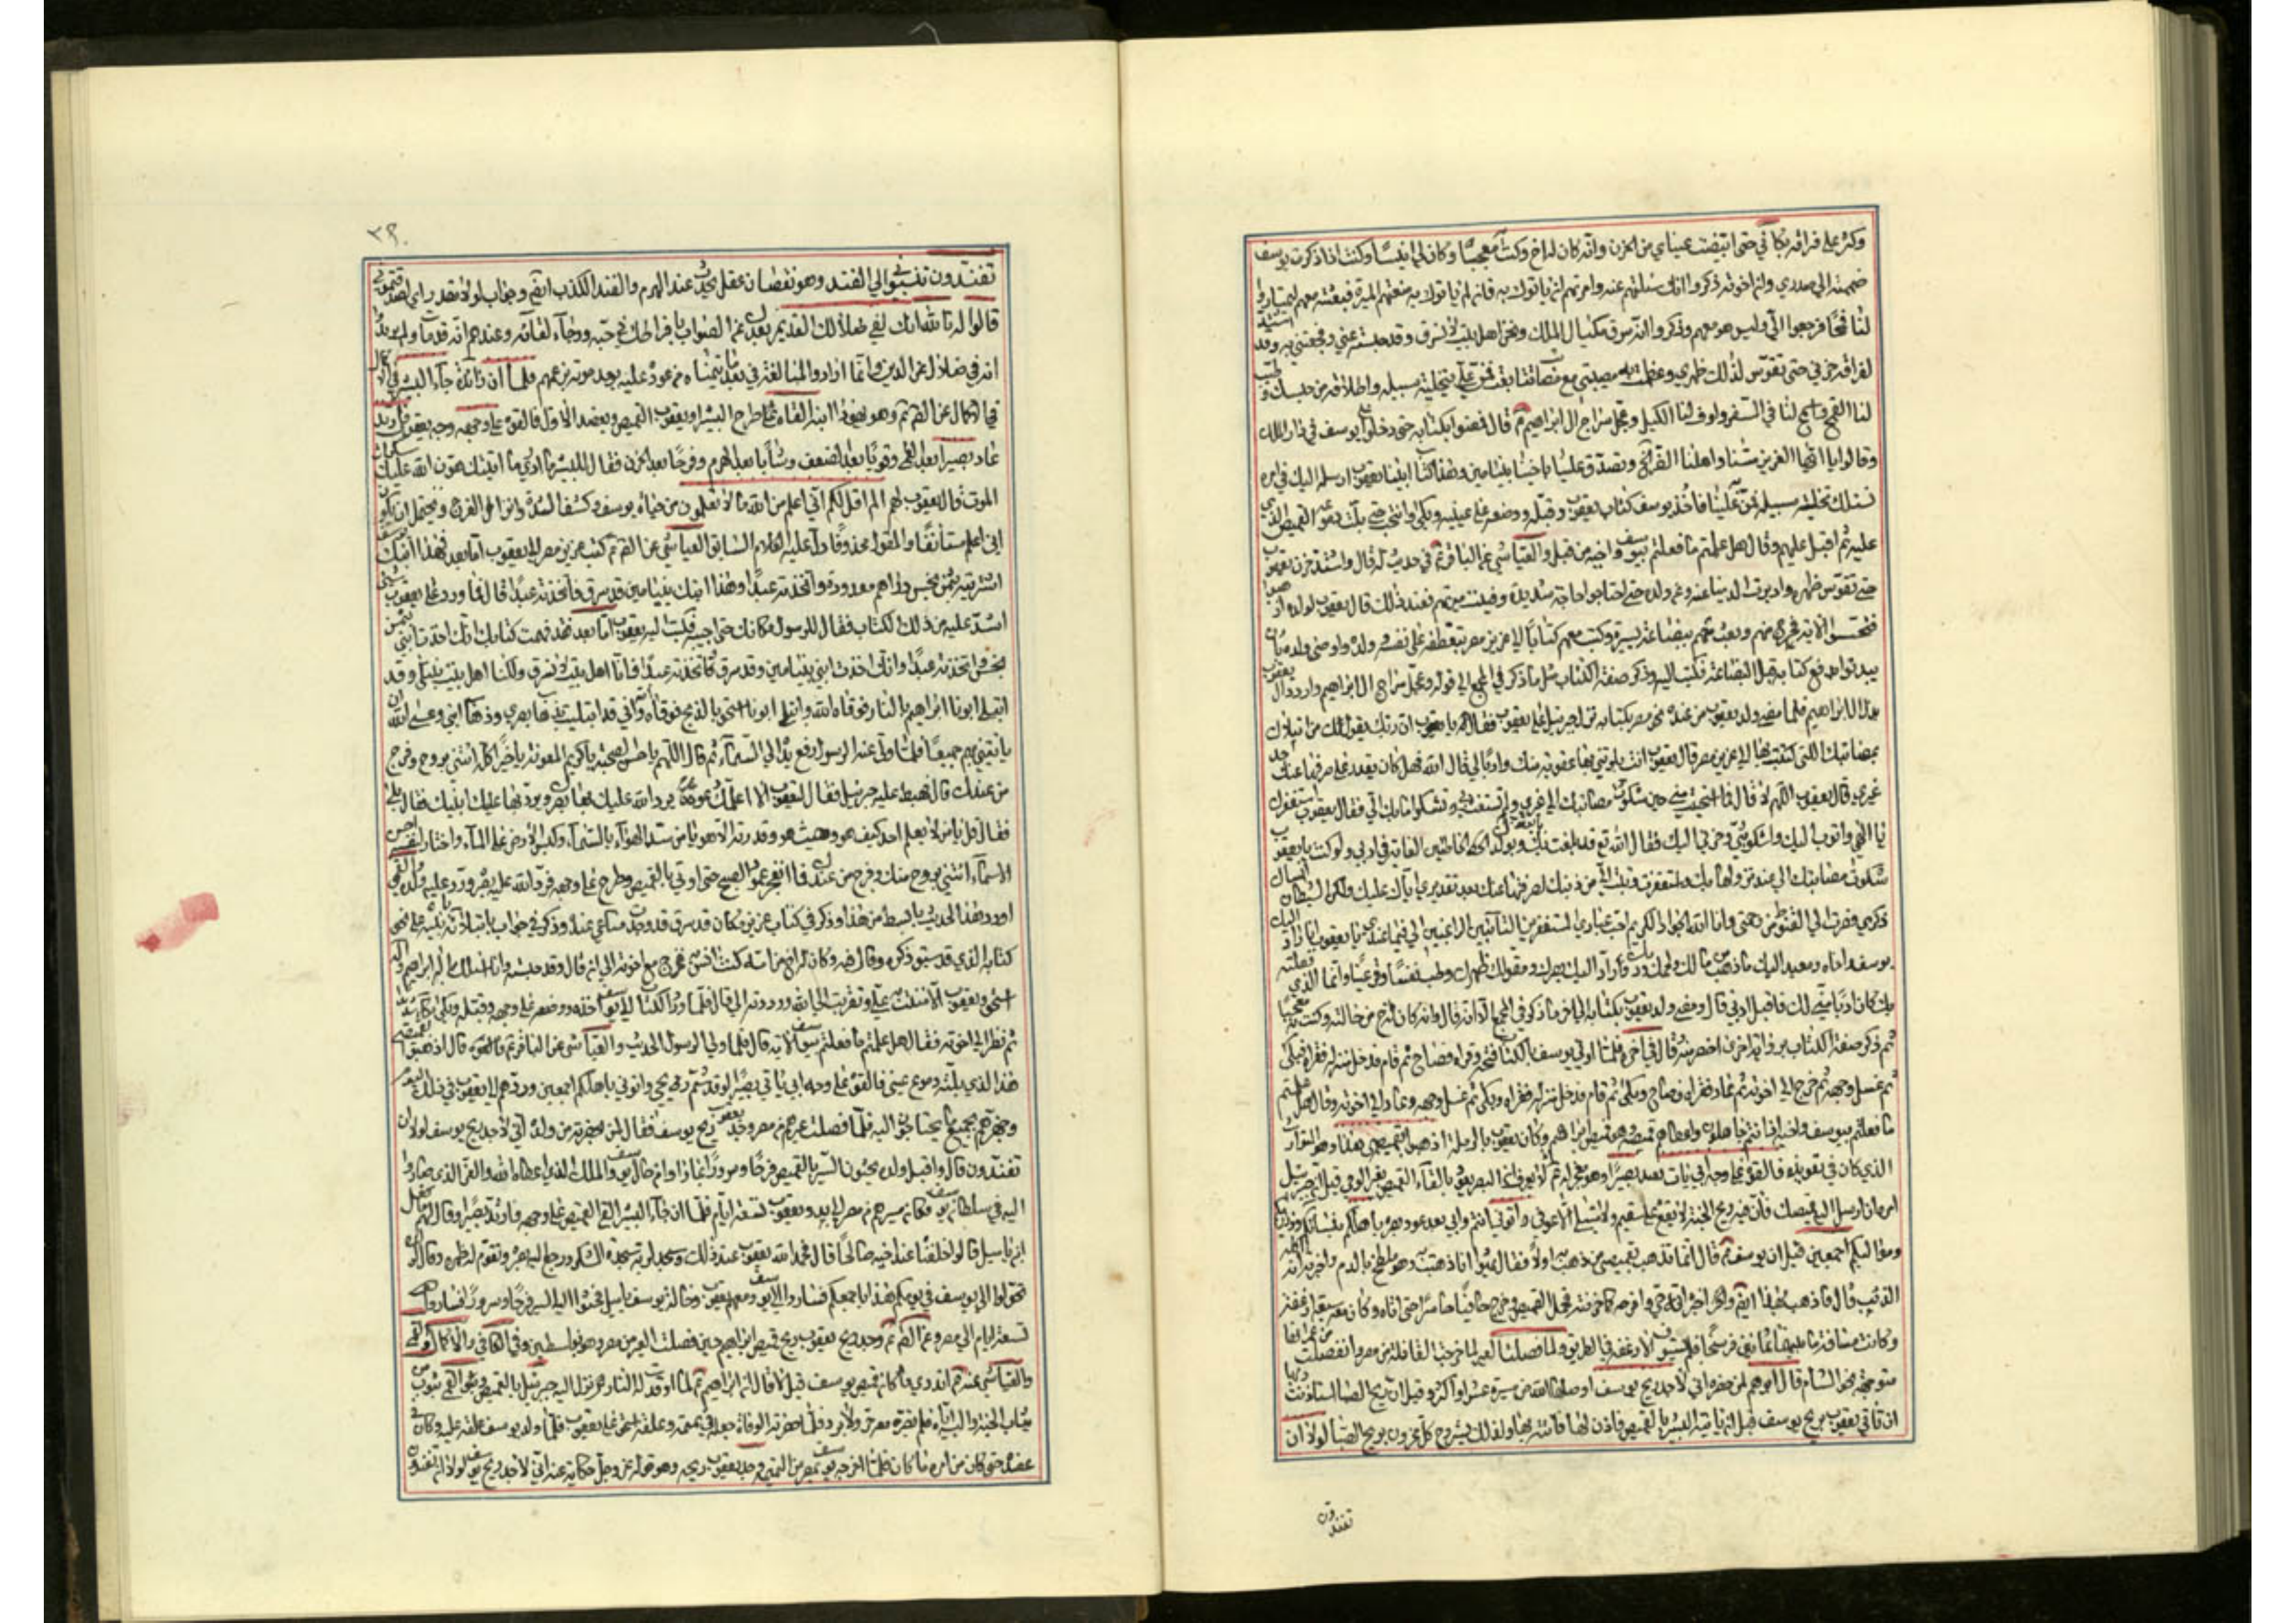 وكثر على فراقه بكائي حتى ابيضت عيناي من الحزن وانه كان له اخ وكنت به معجبا وكان لي انيسا وكنت اذا ذكرت يوسف
ضممته الى صدري وان اخوته ذكروا انك سئلتهم عنه وامرتهم ان ياتوك به فان لم ياتوك به منعتهم الميرة فبعثته معهم ليمتاروا
لنا قمحا فرجعوا الي وليس هو معهم وذكروا انه سرق مكيال الملك ونحن اهل بيت لا نسرق وقد حبسته عني وفجعتني به وقد اشتد
لفراقه حزني حتى تقوس لذلك ظهري وعظمت به مصيبتي مع مصائب تتابعت علي فمن علي بتخلية سبيله واطلاقه من حبسك وطيب
لنا القمح واسمح لنا في السعر واوف لنا الكيل وعجل سراح ال ابراهيم قال فمضوا بكتابه حتى دخلوا على يوسف في دار الملك
وقالوا يا ايها العزيز مسنا واهلنا الضر الخ وتصدق علينا باخينا بنيامين وهذا كتاب ابينا يعقوب ارسله اليك في امره
نسئلك تخلية سبيله فمن به علينا فاخذ يوسف كتاب يعقوب وقبله ووضعه على عينيه وبكى وانتحب حتى بلت دموعه القميص الذي
عليه ثم اقبل عليهم وقال هل علمتم ما فعلتم بيوسف واخيه من قبل والعياشي عن الباقر في حديث له قال واشتد حزن يعقوب
حتى تقوس ظهره وادبرت الدنيا عنه وعن ولده حتى احتاجوا حاجة شديدة وفنيت ميرتهم فعند ذلك قال يعقوب لولده اذهبوا
فتحسسوا الاية فخرج منهم وبعث معهم ببضاعة يسيرة وكتب معهم كتابا الى عزيز مصر يتعطفه على نفسه وولده واوصى ولده بان
يبدئوا بدفع كتابه قبل البضاعة فكتب اليه وذكر صفة الكتاب مثل ما ذكر في المجمع الى قوله وعجل سراح ال ابراهيم واردد ال يعقوب
هذا ال ابراهيم فلما مضى ولد يعقوب من عنده نحو مصر بكتابه نزل جبرئيل على يعقوب فقال له يا يعقوب ان ربك يقول لك من ابتلاك
بمصائبك التي كتبت بها الى عزيز مصر قال يعقوب انت بلوتني بها عقوبة منك وادبا لي قال الله فهل كان يقدر على صرفها عنك احد
غيري قال يعقوب اللهم لا قال فما استحييت مني حين شكوت مصائبك الى غيري ولم تستغث بي وتشكو ما بك الي فقال يعقوب استغفرك
يا الهي واتوب اليك واشكو بثي وحزني اليك فقال الله تع قد بلغت بك وبولدك الخاطئين الغاية في ادبي ولو كنت يا يعقوب
شكوت مصائبك الي عند نزولها بك واستغفرت وتبت الي من ذنبك لصرفتها عنك بعد تقديري اياها عليك ولكن الشيطان انساك
ذكري فصرت الى القنوط من رحمتي وانا الله الجواد الكريم احب عبادي المستغفرين التائبين الراغبين الي فيما عندي يا يعقوب انا راد اليك
يوسف واخاه ومعيد اليك ما ذهب من مالك ولحمك ودمك وراد اليك بصرك ومقوم لك ظهرك وطب نفسا وقر عينا وانما الذي فعلته
بك كان ادبا مني لك فاقبل ادبي قال ومضى ولد يعقوب بكتابه الى اخر ما ذكر في المجمع الا انه قال وانه كان له اخ من خالته وكنت به معجبا
ثم ذكر صفة الكتاب برواية اخرى اخصر منه قال في اخره فلما اوتي يوسف بالكتاب فتحه وقراه فصاح ثم قام فدخل منزله فقراه فبكى
ثم غسل وجهه ثم خرج الى اخوته ثم عاد فقراه فصاح وبكى ثم قام فدخل منزله فقراه وبكى ثم غسل وجهه وعاد الى اخوته وقال هل علمتم
ما فعلتم بيوسف واخيه اذ انتم جاهلون واعطاهم قميصه وهو قميص ابراهيم وكان يعقوب بالرملة اذهبوا بقميصي هذا وهو المتوارث
الذي كان في تعويذه فالقوه على وجه ابي يات بعد بصيرا وهو معجزة له اذ لا يعرف ان البصر يعود بالقاء القميص بغير الوحي قيل اخبره جبرئيل
امره ان ارسل اليه قميصك فان فيه ريح الجنة لا يقع على سقيم ولا مبتلى الا عوفي واتوني انتم وابي بعد عود بصره باهلكم بنسائكم وذراريكم
ومواليكم اجمعين قيل ان يوسف قال انما يذهب بقميصي من ذهب به اولا فقال يهودا انا ذهبت به وهو ملطخ بالدم واخبرته انه اكله
الذئب قال فاذهب بهذا ايضا واخبره انه حي وافرحه كما حزنته فحمل القميص وخرج حافيا حاسرا حتى اتاه وكان معه سبعة ارغفة
وكانت مسافة ما بينهما ثمانين فرسخا فلم يستوف الارغفة في الطريق ولما فصلت العير لما خرجت القافلة من مصر وانفصلت من عمرانها
متوجهة نحو الشام قال ابوهم لمن حضره اني لاجد ريح يوسف اوصلها الله من مسيرة عشر او اكثر وقيل ان ريح الصبا استاذنت ربها
ان تاتي يعقوب بريح يوسف قبل ان ياتيه البشير بالقميص فاذن لها فاتته بها ولذلك يستروح كل محزون بريح الصبا لولا ان
تفندون
٢٩٠
تفندون تنسبوني الى الفند وهو نقصان عقل يحدث عند الهرم والفند الكذب ايضا وجواب لولا مقدر اي لصدقتموني
قالوا له تالله انك لفي ضلالك القديم بعدك عن الصواب بافراطك في حبه ورجاء لقائه وعندهم انه قد مات ولم يريدوا
انه في ضلال عن الدين وانما ارادوا المبالغة في بعد ما يتمناه من عوده عليه بعد موته بزعمهم فلما ان زائدة جاء البشير في الاكمال
عن الصم وهو يهودا ابنه القاه طرح البشير او يعقوب القميص ويعضد الاول فالقوه على وجهه وجه يعقوب فارتد
عاد بصيرا بعد العمى وقويا بعد الضعف وشابا بعد الهرم وفرحا بعد الحزن فقال للبشير ما ادري ما اثيبك هون الله عليك سكرات
الموت قال يعقوب لهم الم اقل لكم اني اعلم من الله ما لا تعلمون من حياة يوسف وكشف الشدة وانزال الفرج ويحتمل ان يكون
اني اعلم مستانفا والمقول محذوفا دل عليه الكلام السابق العياشي عن الصم كتب عزيز مصر الى يعقوب اما بعد فهذا ابنك يوسف
اشتريته بثمن بخس دراهم معدودة واتخذته عبدا وهذا ابنك بنيامين قد سرق فاتخذته عبدا قال فما ورد على يعقوب شيء
اشد عليه من ذلك الكتاب فقال للرسول مكانك حتى اجيبه فكتب اليه يعقوب اما بعد فقد فهمت كتابك انك اخذت ابني بثمن
بخس واتخذته عبدا وانك اخذت ابني بنيامين وقد سرق فاتخذته عبدا فانا اهل بيت لا نسرق ولكنا اهل بيت نبتلى وقد
ابتلي ابونا ابراهيم بالنار فوقاه الله وابتلي ابونا اسحق بالذبح فوقاه واني قد ابتليت بذهاب بصري وذهاب ابني وعسى الله ان
ياتيني بهم جميعا فلما ولى عنه الرسول رفع يده الى السماء ثم قال اللهم يا حسن الصحبة يا كريم المعونة يا خيرا كله ائتني بروح وفرج
من عندك قال فهبط عليه جبرئيل فقال ليعقوب الا اعلمك دعوات يرد الله عليك بها بصرك ويرد بها عليك ابنيك فقال بلى
فقال قل يا من لا يعلم احد كيف هو وحيث هو وقدرته الا هو يا من سد الهواء بالسماء وكبس الارض على الماء واختار لنفسه احسن
الاسماء ائتني بروح منك وفرج من عندك فما انفجر عمود الصبح حتى اوتي بالقميص وطرح على وجهه فرد الله عليه بصره ورد عليه ولده والقمي
اورد هذا الحديث بابسط من هذا وذكر في كتاب عزيز مكان قد سرق قد وجدت متاعي عنده وذكر في جواب يابتلائه بنيه على نحو
كتابه الذي قد سبق ذكره وقال فيه وكان له اخ من امه كنت انس به فخرج مع اخوته الى ان قال وقد حبسته وانا اسئلك باله ابراهيم واله
اسحق ويعقوب الا مننت علي به وتقربت الى الله ورددته الي قال فلما ورد الكتاب الى يوسف اخذه ووضعه على وجهه وقبله وبكى بكاء شديدا
ثم نظر الى اخوته فقال هل علمتم ما فعلتم بيوسف الاية قال فلما ولى الرسول الحديث والعياشي عن الباقر فالقوه قال اذهبوا بقميصي
هذا الذي بلته دموع عيني فالقوه على وجه ابي يات بصيرا لو قد شم ريحي واتوني باهلكم اجمعين وردهم الى يعقوب في ذلك اليوم
وجهزهم بجميع ما يحتاجون اليه فلما فصلت عيرهم من مصر وجد يعقوب ريح يوسف فقال لمن بحضرته من ولده اني لاجد ريح يوسف لولا ان
تفندون قال واقبل ولده يحثون السير بالقميص فرحا وسرورا بما راوا من حال يوسف والملك الذي اعطاه الله والعز الذي صاروا
اليه في سلطان يوسف وكان مسيرهم من مصر الى بدو يعقوب تسعة ايام فلما ان جاء البشير القى القميص على وجهه فارتد بصيرا وقال لهم ما فعل
ابن ياميل قالوا خلفناه عند اخيه صالحا قال فحمد الله يعقوب عند ذلك وسجد لربه سجدة الشكر ورجع اليه بصره وتقوم له ظهره وقال لولده
تحولوا الى يوسف في يومكم هذا باجمعكم فساروا الى يوسف ومعهم يعقوب وخالة يوسف ياميل فحثوا السير فرحا وسرورا فساروا
تسعة ايام الى مصر وعن الصم وجد يعقوب ريح قميص ابراهيم حين فصلت العير من مصر وهو بفلسطين وفي الكافي والاكمال والقمي
والعياشي عنه اتدري ما كان قميص يوسف قيل لا قال ان ابراهيم لما اوقدت له النار نزل اليه جبرئيل بالقميص وفي القمي بثوب من
ثياب الجنة والبسه اياه فلم يضره معه حر ولا برد فلما حضرته الوفاة جعله في تميمة وعلقه على اسحق وعلقه اسحق على يعقوب فلما ولد يوسف علقه عليه وكان في
عضده حتى كان من امره ما كان فلما اخرجه يوسف بمصر من التميمة وجد يعقوب ريحه وهو قوله عز وجل حكاية عنه اني لاجد ريح يوسف لولا ان تفندون